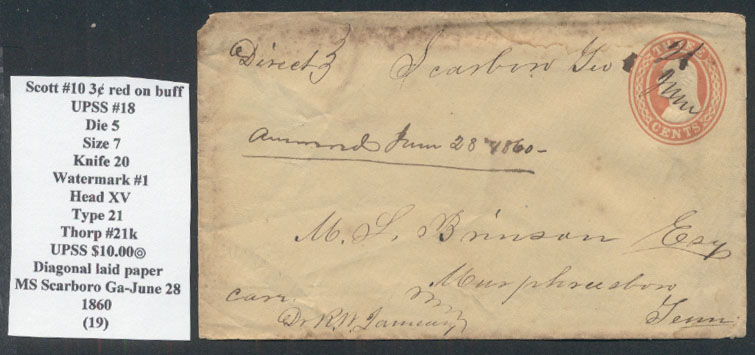 Scott #10 3¢ red on buff
UPSS #18
Die 5
Size 7
Knife 20
Watermark #1
Head XV
Type 21
Thorp #21k
UPSS $10.00◎
Diagonal laid paper
MS Scarboro Ga-June 28
1860
(19)
Direct
Scarboro Geo
21
June
THREE
CENTS
June 28 1860-
M. L. Brinson Esq
Murphreesboro
Tenn
care
Dr R. W. January